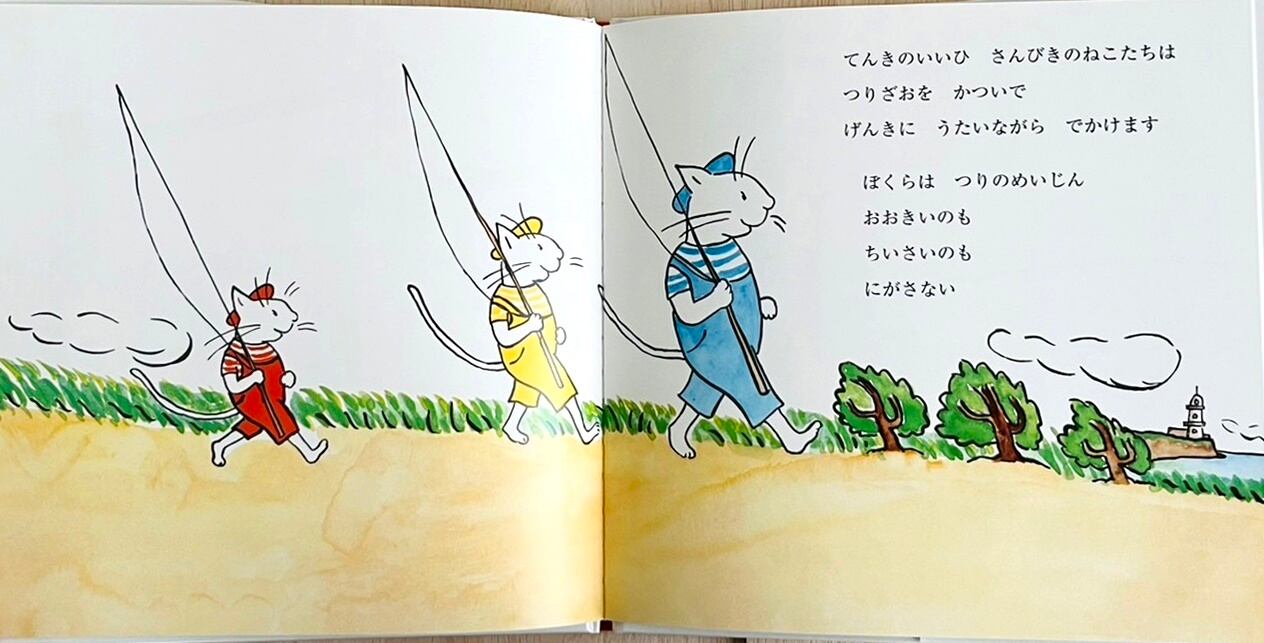 てんきのいいひ　さんびきのねこたちは
つりざおを　かついで
げんきに　うたいながら　でかけます
ぼくらは　つりのめいじん
おおきいのも
ちいさいのも
にがさない